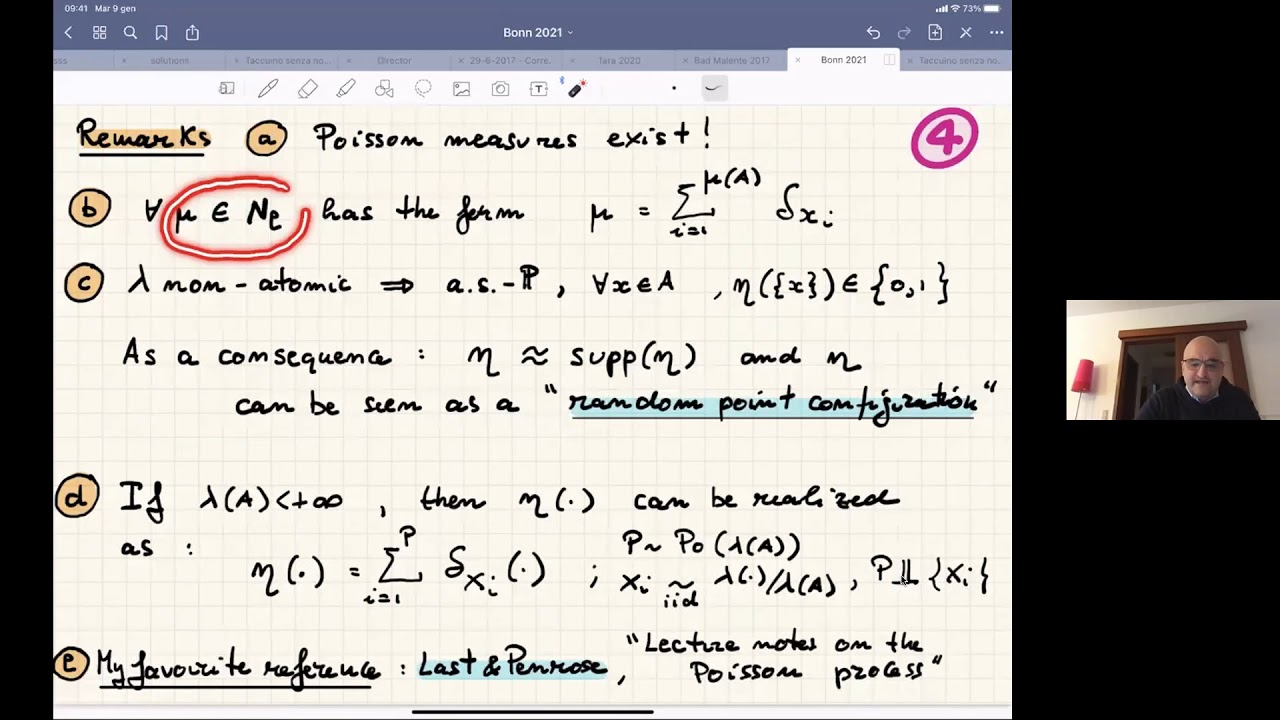 09:41 Mar 9 gen
73%
Bonn 2021
solutions
Taccuino senza no...
Director
29-6-2017 - Corre.
Tara 2020
Bad Malente 2017
Bonn 2021
Taccuino senza no.
Remarks (a) Poisson measures exist!
④
(b) ∀ μ ∈ N_ℓ has the form μ = Σ_{i=1}^{μ(A)} δ_{x_i}
(c) λ non-atomic ⇒ a.s.-ℙ, ∀x∈A, η({x}) ∈ {0,1}
As a consequence : η ≈ supp(η) and η
can be seen as a "random point configuration"
(d) If λ(A)<+∞, then η(·) can be realized
as : η(·) = Σ_{i=1}^{P} δ_{X_i}(·) ; P ~ Po(λ(A))
X_i ~_{iid} λ(·)/λ(A), P ⫫ {X_i}
(e) My favourite reference : Last & Penrose, "Lecture notes on the
Poisson process"